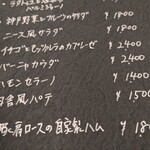 神戸野菜とフルーツのサラダ ¥1800
ニース風サラダ ¥1800
イチゴとモッツァレラのカプレーゼ ¥2400
バーニャカウダ ¥2400
ハモンセラーノ ¥1400
田舎風パテ ¥1500
肩ロースの自家製ハム ¥18